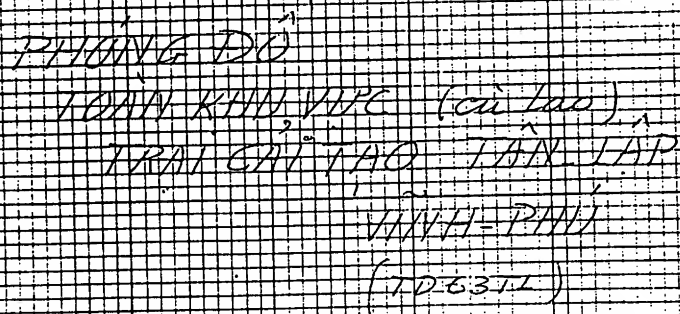 PHỎNG ĐỒ
TOÀN KHU VỰC (cù lao)
TRẠI CẢI TẠO TÂN-LẬP
VĨNH-PHÚ
(TD63TL)